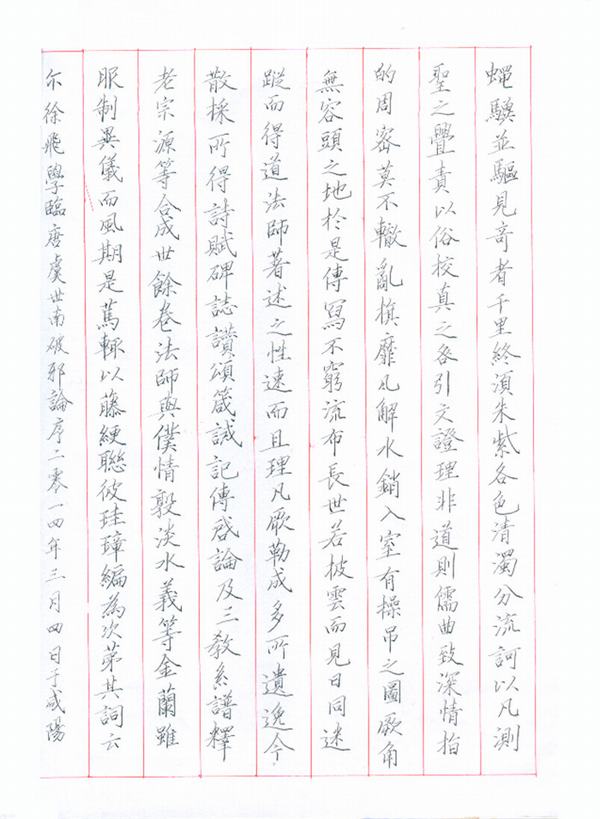 蠅驥並驅見奇者千里終須朱紫各色清濁分流訶以凡測
聖之舋責以俗校真之咎引文證理非道則儒曲致深情指
的周密莫不轍亂旗靡凡解水銷入室有操吊之圖厥角
無容頭之地於是傳寫不窮流布長世若披雲而見日同迷
蹤而得道法師著述之性速而且理凡厥勒成多所遺逸今
散採所得詩賦碑誌讃頌箴誡記傳啓論及三教系譜釋
老宗源等合成卅餘卷法師與僕情敦淡水義等金蘭雖
服制異儀而風期是篤輒以藤綆聯彼珪璋編為次第其詞云
尒徐飛學臨唐虞世南破邪論序二零一四年三月四日于咸陽